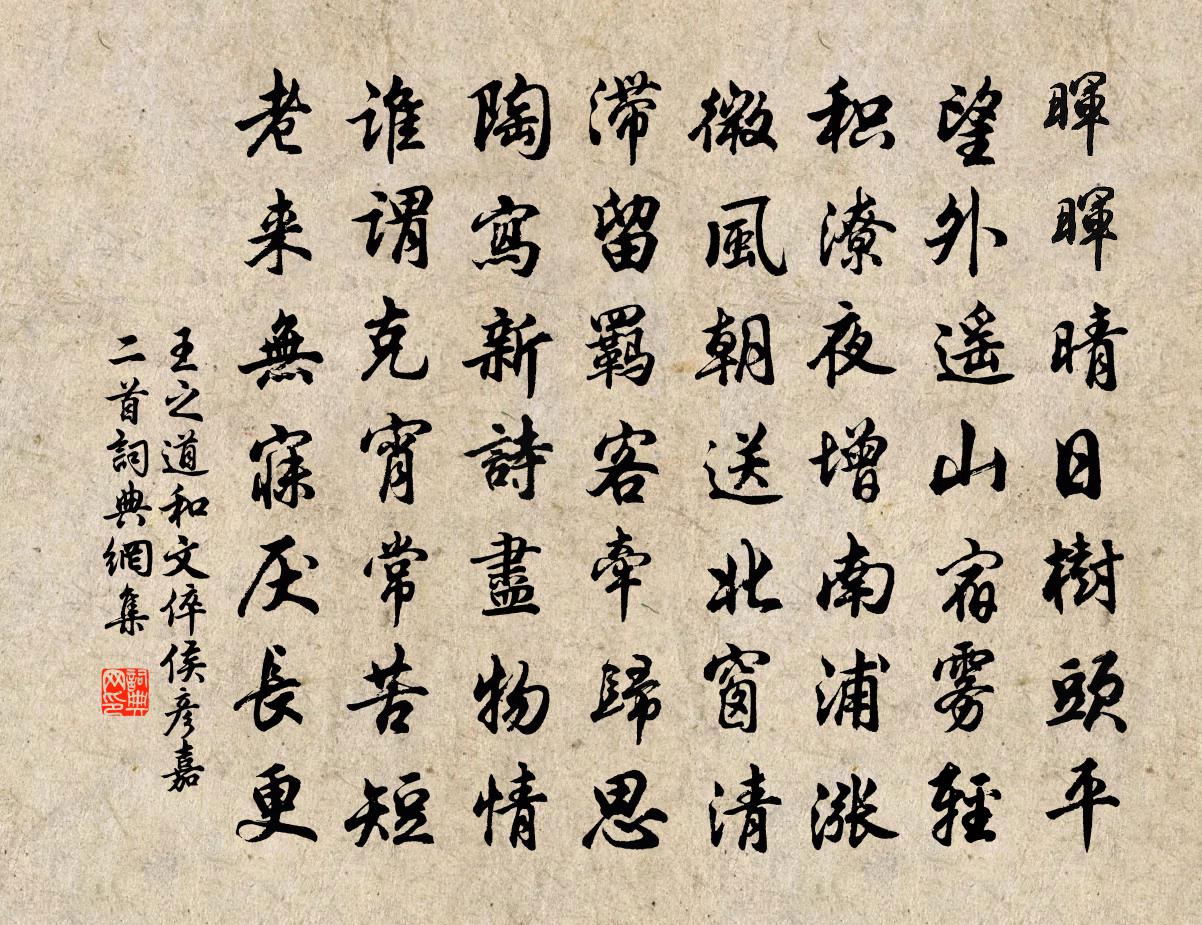 暉暉晴日樹頭平
望外遥山宿雾輕
积潦夜增南浦漲
微風朝送北窗清
滯留羈客牽歸思
陶寫新詩盡物情
誰謂克宵常苦短
老来無寐厌長更
王之道和文倅侯彦嘉
二首詞典網集
詞典
网印